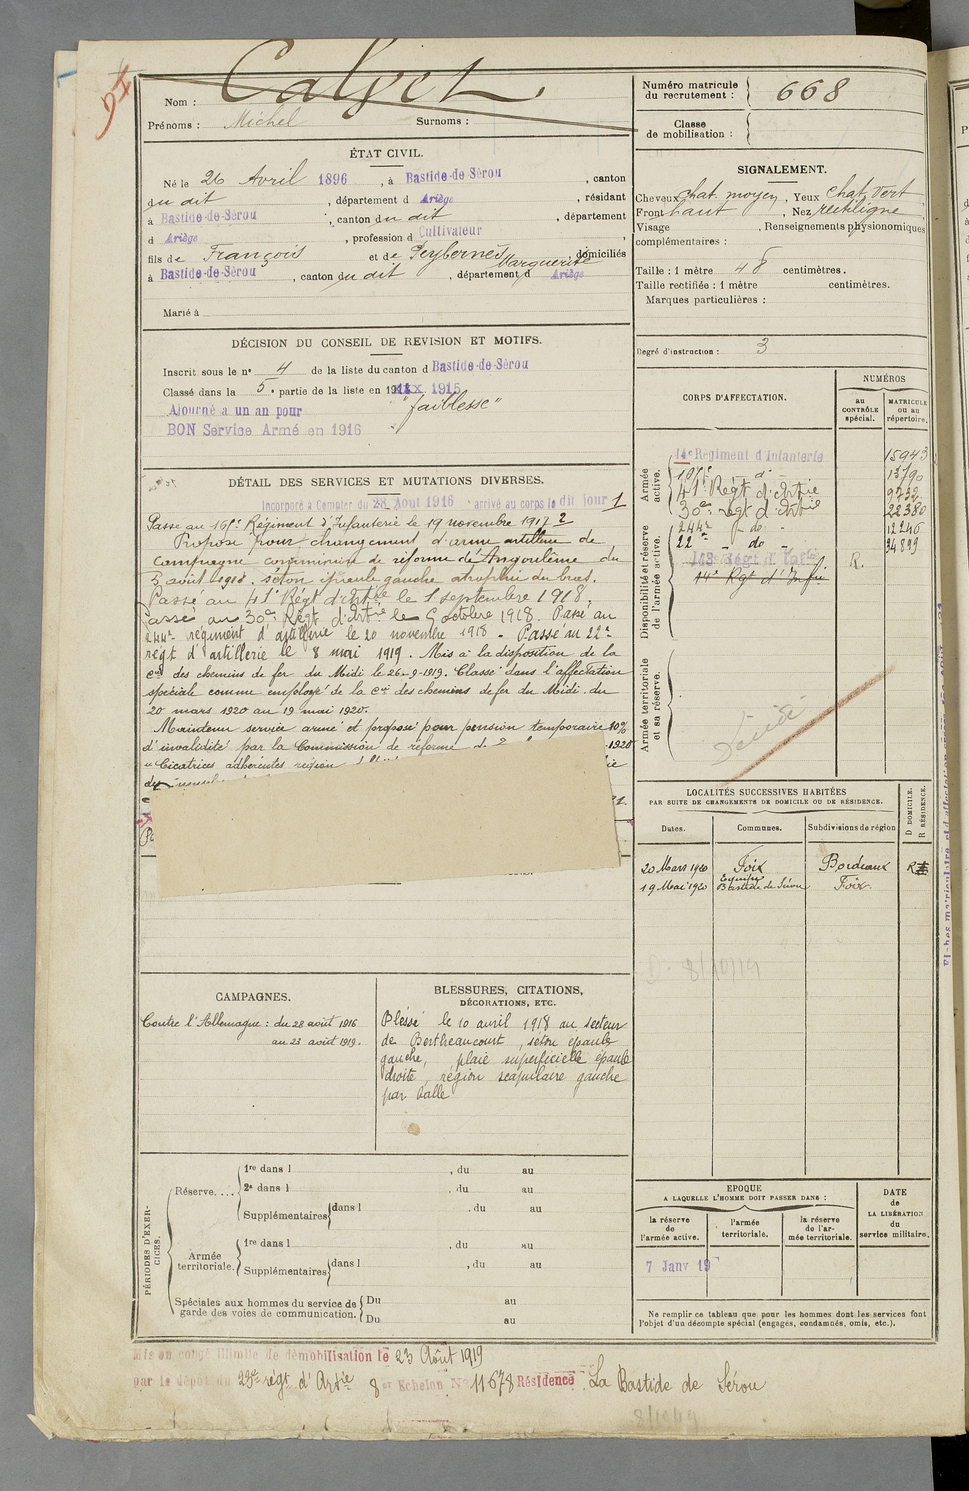 94
Nom : Calvet
Prénoms : Michel Surnoms :
Numéro matricule du recrutement : 668
Classe de mobilisation :
ÉTAT CIVIL.
Né le 26 Avril 1896, à Bastide-de-Sérou, canton
du dit, département d Ariège, résidant
à Bastide-de-Sérou, canton du dit, département
d Ariège, profession d Cultivateur
fils de François et de Peybernès Marguerite domiciliés
à Bastide-de-Sérou, canton du dit, département d Ariège
Marié à
SIGNALEMENT.
Cheveux chat. moyen, Yeux chat. vert
Front haut, Nez rectiligne
Visage , Renseignements physionomiques
complémentaires :
Taille : 1 mètre 48 centimètres.
Taille rectifiée : 1 mètre centimètres.
Marques particulières :
Degré d'instruction : 3
DÉCISION DU CONSEIL DE REVISION ET MOTIFS.
Inscrit sous le n° 4 de la liste du canton d Bastide-de-Sérou
Classé dans la 5e partie de la liste en 1915
Ajourné a un an pour "faiblesse"
BON Service Armé en 1916
DÉTAIL DES SERVICES ET MUTATIONS DIVERSES.
Incorporé à Compter du 28 Aout 1916 arrivé au corps le dit jour 1
Passé au Régiment d'Infanterie le 19 novembre 1917 2
Proposé pour changement d'arme artillerie de
campagne commission de réforme d'Angoulême du
5 août 1918. séton épaule gauche atrophie du bras.
Passé au 41e Régt d'Artie le 1 septembre 1918.
Passé au 30e Régt d'Artie le 9 octobre 1918. Passé au
244e régiment d'artillerie le 20 novembre 1918 - Passé au 22e
régt d'artillerie le 8 mai 1919. Mis à la disposition de la
Cie des chemins de fer du Midi le 26-9-1919. Classé dans l'affectation
spéciale comme employé de la Cie des chemins de fer du Midi. du
20 mars 1920 au 19 mai 1920.
Maintenu service armé et proposé pour pension temporaire 10%
d'invalidité par la Commission de réforme 1920
"Cicatrices adhérentes région
CORPS D'AFFECTATION.
NUMÉROS
au CONTRÔLE spécial.
MATRICULE ou au répertoire.
Armée active.
14e Régiment d'Infanterie 15943
do 1370
41e Régt d'Artie 9732
30e régt d'Artie 22380
Disponibilité et réserve de l'armée active.
244e do 12246
22e do 34899
R.
14e Rgt d'Infie
Armée territoriale et sa réserve.
LOCALITÉS SUCCESSIVES HABITÉES
PAR SUITE DE CHANGEMENTS DE DOMICILE OU DE RÉSIDENCE.
Dates. Communes. Subdivisions de région D DOMICILE. R RÉSIDENCE.
20 Mars 1920 Foix Bordeaux R
19 Mai 1920 Bastide de Sérou Foix
CAMPAGNES.
Contre l'Allemagne : du 28 août 1916
au 23 août 1919.
BLESSURES, CITATIONS,
DÉCORATIONS, ETC.
Blessé le 10 avril 1918 au secteur
de Bertheaucourt, séton épaule
gauche, plaie superficielle épaule
droite, région scapulaire gauche
par balle
PÉRIODES D'EXERCICES.
Réserve....
1re dans l , du au
2e dans l , du au
Supplémentaires dans l , du au
Armée territoriale.
1re dans l , du au
Supplémentaires dans l , du au
Spéciales aux hommes du service de garde des voies de communication.
Du au
Du au
EPOQUE
A LAQUELLE L'HOMME DOIT PASSER DANS :
la réserve de l'armée active.
l'armée territoriale.
la réserve de l'armée territoriale.
DATE de LA LIBÉRATION du service militaire.
7 Janv 19
Ne remplir ce tableau que pour les hommes dont les services font
l'objet d'un décompte spécial (engagés, condamnés, omis, etc.).
Mis en congé illimité de démobilisation le 23 Août 1919
par le dépôt du 23e régt d'Artie 8er Echelon No 11678 Résidence La Bastide de Sérou